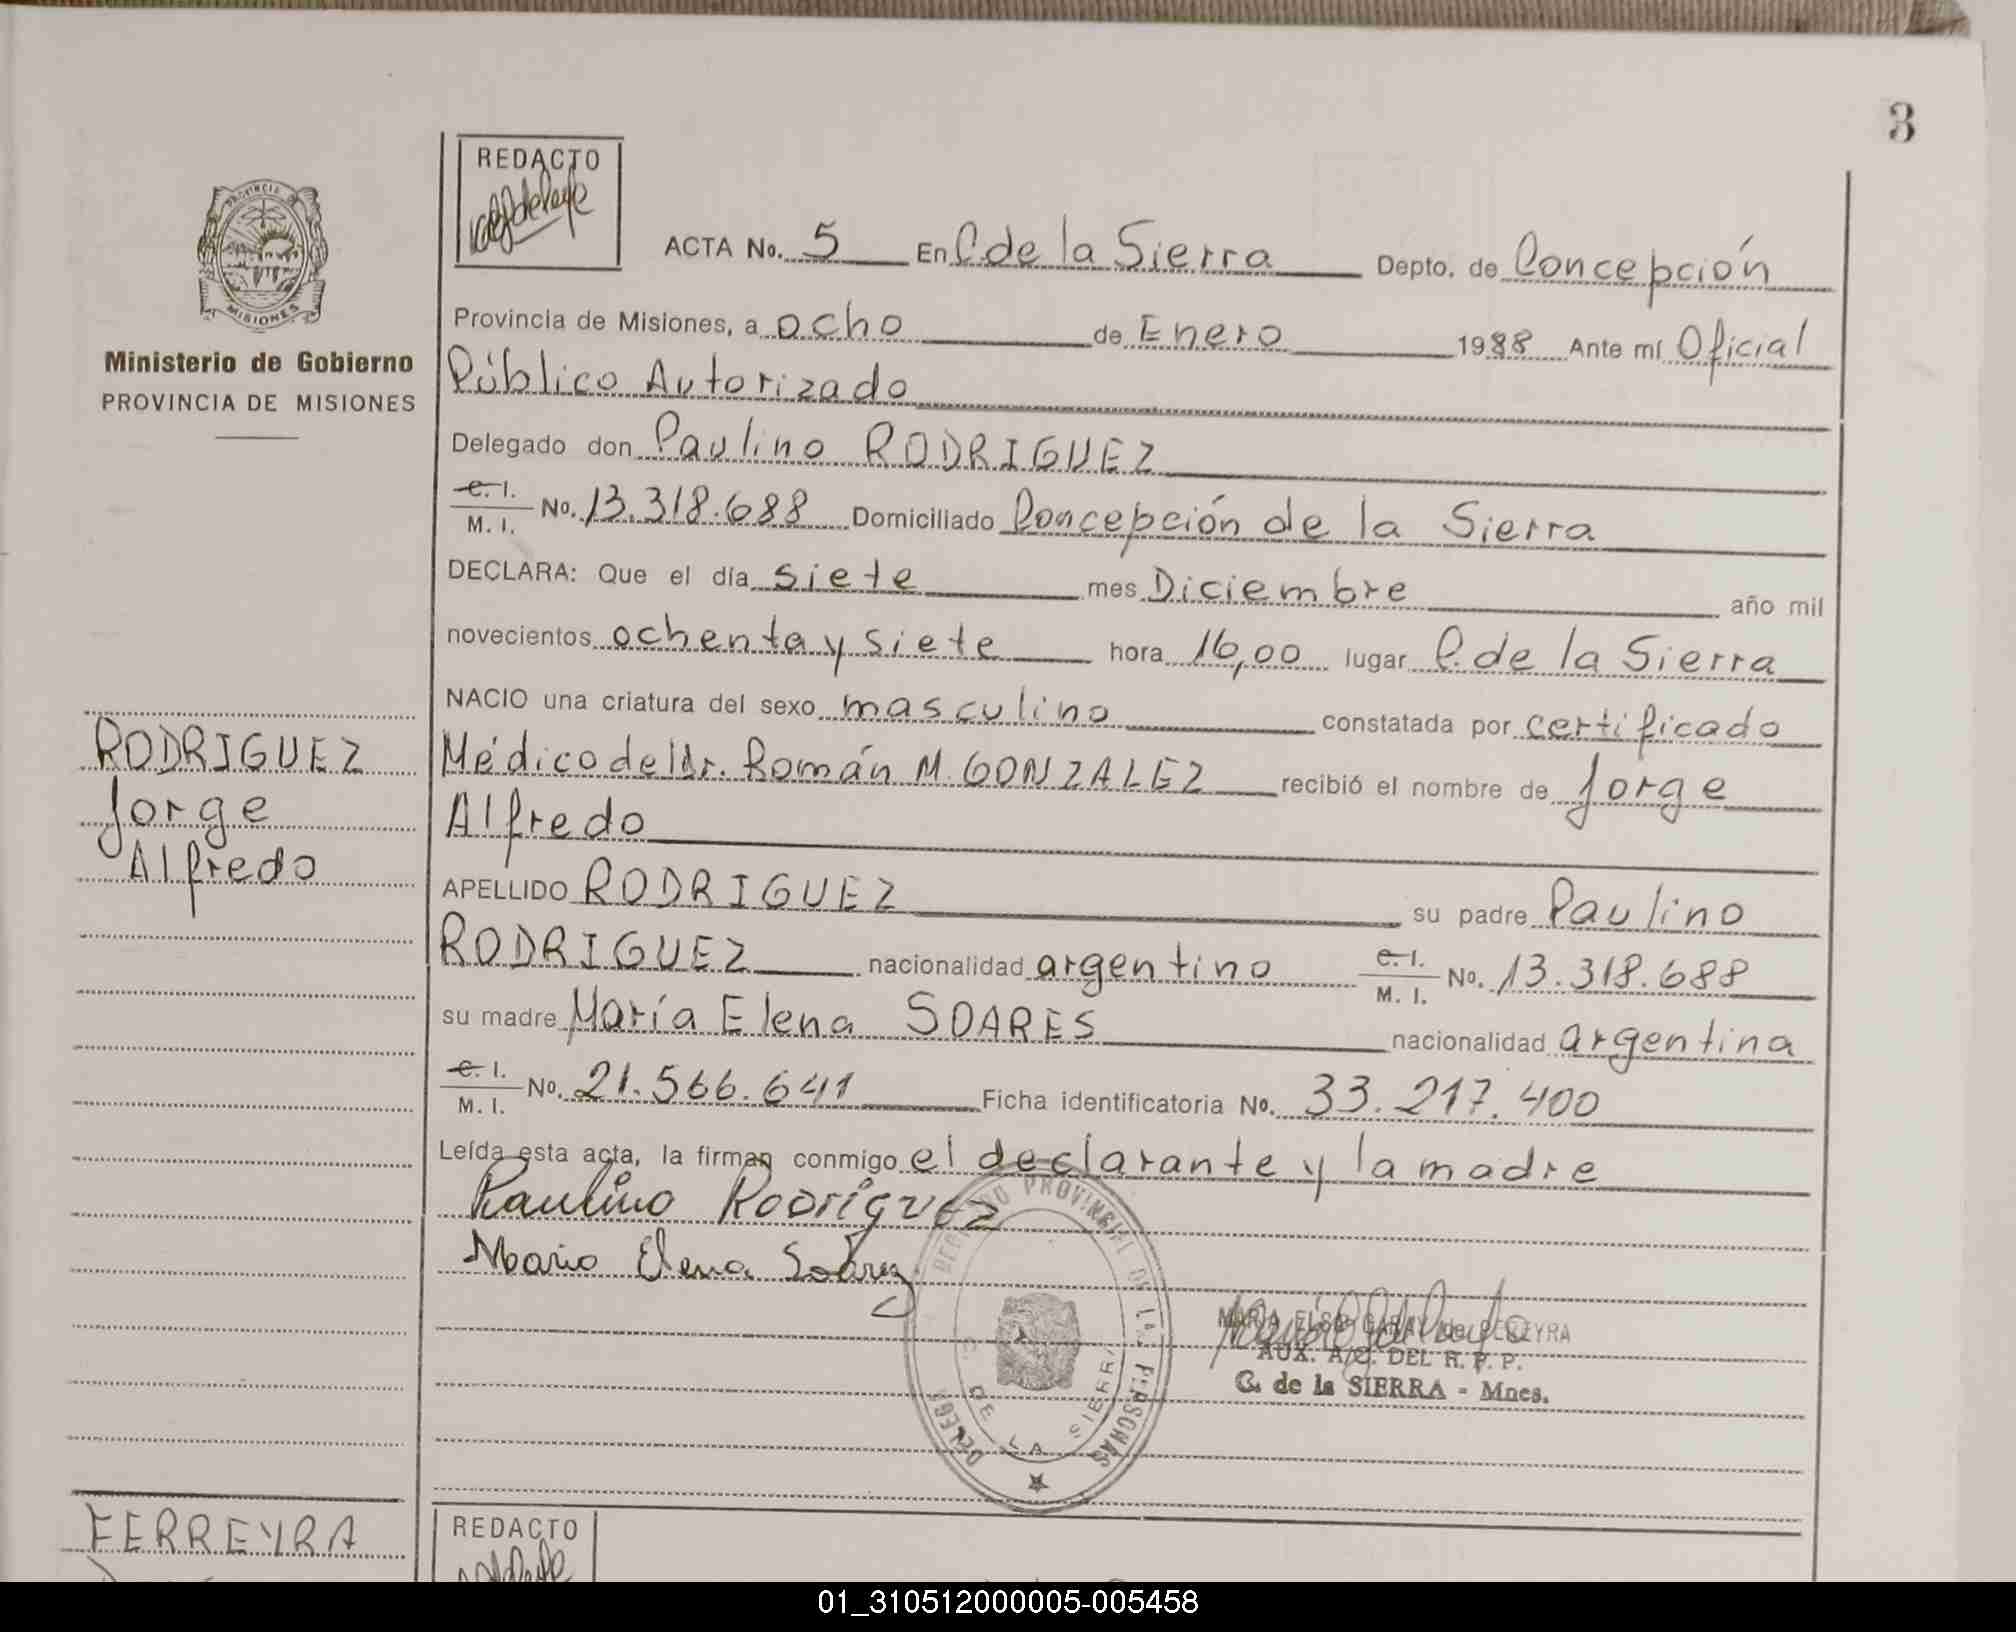 3
REDACTO
PROVINCIA DE
MISIONES
ACTA No. 5 En C. de la Sierra Depto. de Concepción
Ministerio de Gobierno
PROVINCIA DE MISIONES
Provincia de Misiones, a ocho de Enero 1988 Ante mí Oficial
Público Autorizado
Delegado don Paulino RODRIGUEZ
C. I.
M. I. No. 13.318.688 Domiciliado Concepción de la Sierra
DECLARA: Que el día siete mes Diciembre año mil
novecientos ochenta y siete hora 16,00 lugar C. de la Sierra
NACIO una criatura del sexo masculino constatada por certificado
Médico del Dr. Román M. GONZALEZ recibió el nombre de Jorge
Alfredo
RODRIGUEZ
Jorge
Alfredo
APELLIDO RODRIGUEZ su padre Paulino
RODRIGUEZ nacionalidad argentino C. I.
M. I. No. 13.318.688
su madre María Elena SOARES nacionalidad argentina
C. I.
M. I. No. 21.566.641 Ficha identificatoria No. 33.217.400
Leída esta acta, la firman conmigo el declarante y la madre
Paulino Rodriguez
Maria Elena Soarez
PROVINCIAL DE LAS PERSONAS
DE LA SIERRA
MARIA ELSA GARAY de PEREYRA
AUX. A/C. DEL R. P. P.
C. de la SIERRA - Mnes.
FERREYRA
REDACTO
01_310512000005-005458